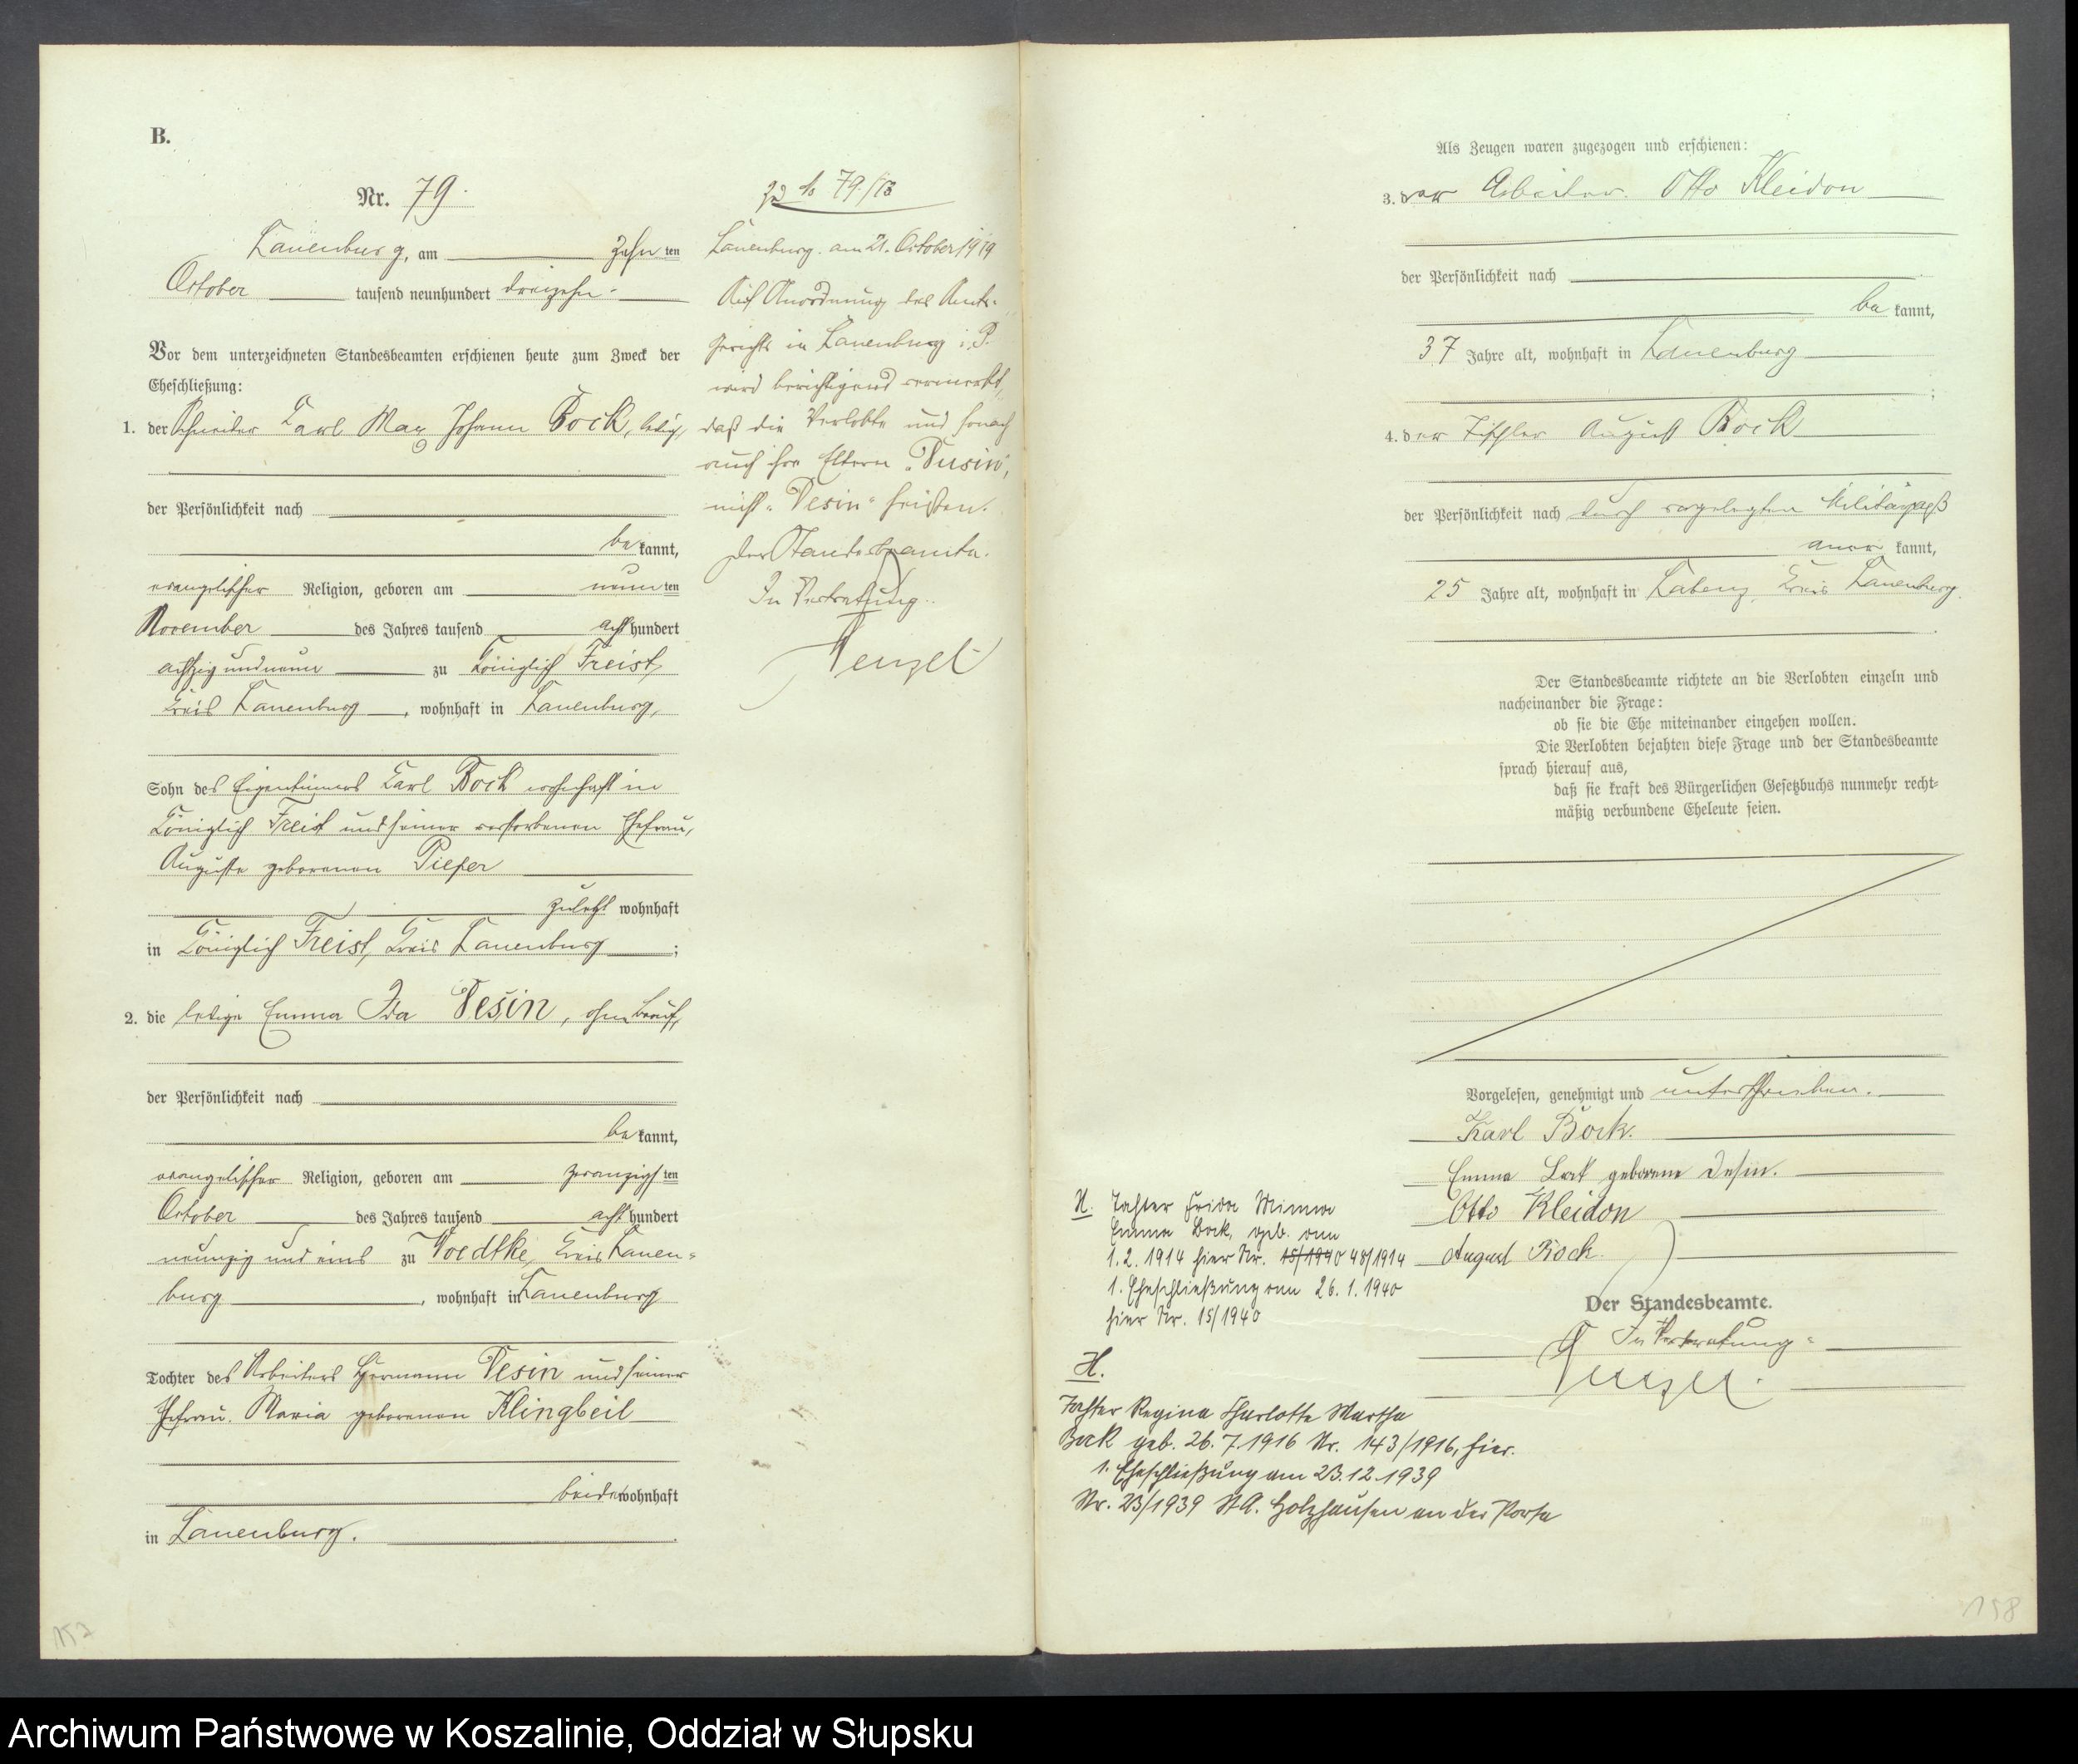 B.
Nr. 79.
Lauenburg, am zehn ten
October tausend neunhundert dreizehn.
Vor dem unterzeichneten Standesbeamten erschienen heute zum Zweck der
Eheschließung:
1. der Schneider Carl Max Johann Bock, ledig,
der Persönlichkeit nach
be kannt,
evangelischer Religion, geboren am neun ten
November des Jahres tausend acht hundert
achtzig und neun zu Königlich Freist,
Kreis Lauenburg, wohnhaft in Lauenburg,
Sohn des Eigentümers Carl Bock wohnhaft in
Königlich Freist und seiner verstorbenen Ehefrau,
Auguste geborenen Pieper
zuletzt wohnhaft
in Königlich Freist, Kreis Lauenburg ;
2. die ledige Emma Ida Desin, ohne Beruf,
der Persönlichkeit nach
be kannt,
evangelischer Religion, geboren am zwanzigs ten
October des Jahres tausend acht hundert
neunzig und eins zu Woedtke, Kreis Lauen-
burg, wohnhaft in Lauenburg
Tochter des Arbeiters Hermann Desin und seiner
Ehefrau Maria geborenen Klingbeil
beide wohnhaft
in Lauenburg.
zu No 79./13
Lauenburg. am 21. October 1919
Auf Anordnung des Amts-
gerichts in Lauenburg i. P.
wird berichtigend vermerkt,
daß die Verlobte und sonach
auch ihre Eltern "Dusin",
nicht "Desin" heißen.
Der Standesbeamte.
In Vertretung.
Menzel
Als Zeugen waren zugezogen und erschienen:
3. der Arbeiter Otto Kleidon
der Persönlichkeit nach
be kannt,
37 Jahre alt, wohnhaft in Lauenburg
;
4. der Tischler August Bock
der Persönlichkeit nach durch vorgelegten Militärpaß
aner kannt,
25 Jahre alt, wohnhaft in Labenz, Kreis Lauenburg.
Der Standesbeamte richtete an die Verlobten einzeln und
nacheinander die Frage:
ob sie die Ehe miteinander eingehen wollen.
Die Verlobten bejahten diese Frage und der Standesbeamte
sprach hierauf aus,
daß sie kraft des Bürgerlichen Gesetzbuchs nunmehr recht-
mäßig verbundene Eheleute seien.
Vorgelesen, genehmigt und unterschrieben.
Karl Bock.
Emma Bock geborene Desin.
Otto Kleidon
August Bock.
Der Standesbeamte.
In Vertretung.
Menzel.
H. Tochter Frida Minna
Emma Bock, geb. am
1.2. 1914 hier Nr. 15/1940 48/1914
1. Eheschließung am 26. 1. 1940
hier Nr. 15/1940
H.
Tochter Regina Charlotte Martha
Bock geb. 26. 7. 1916 Nr. 143/1916, hier.
1. Eheschließung am 23.12.1939
Nr. 23/1939 St.A. Holzhausen an der Porta
157
158
Archiwum Państwowe w Koszalinie, Oddział w Słupsku